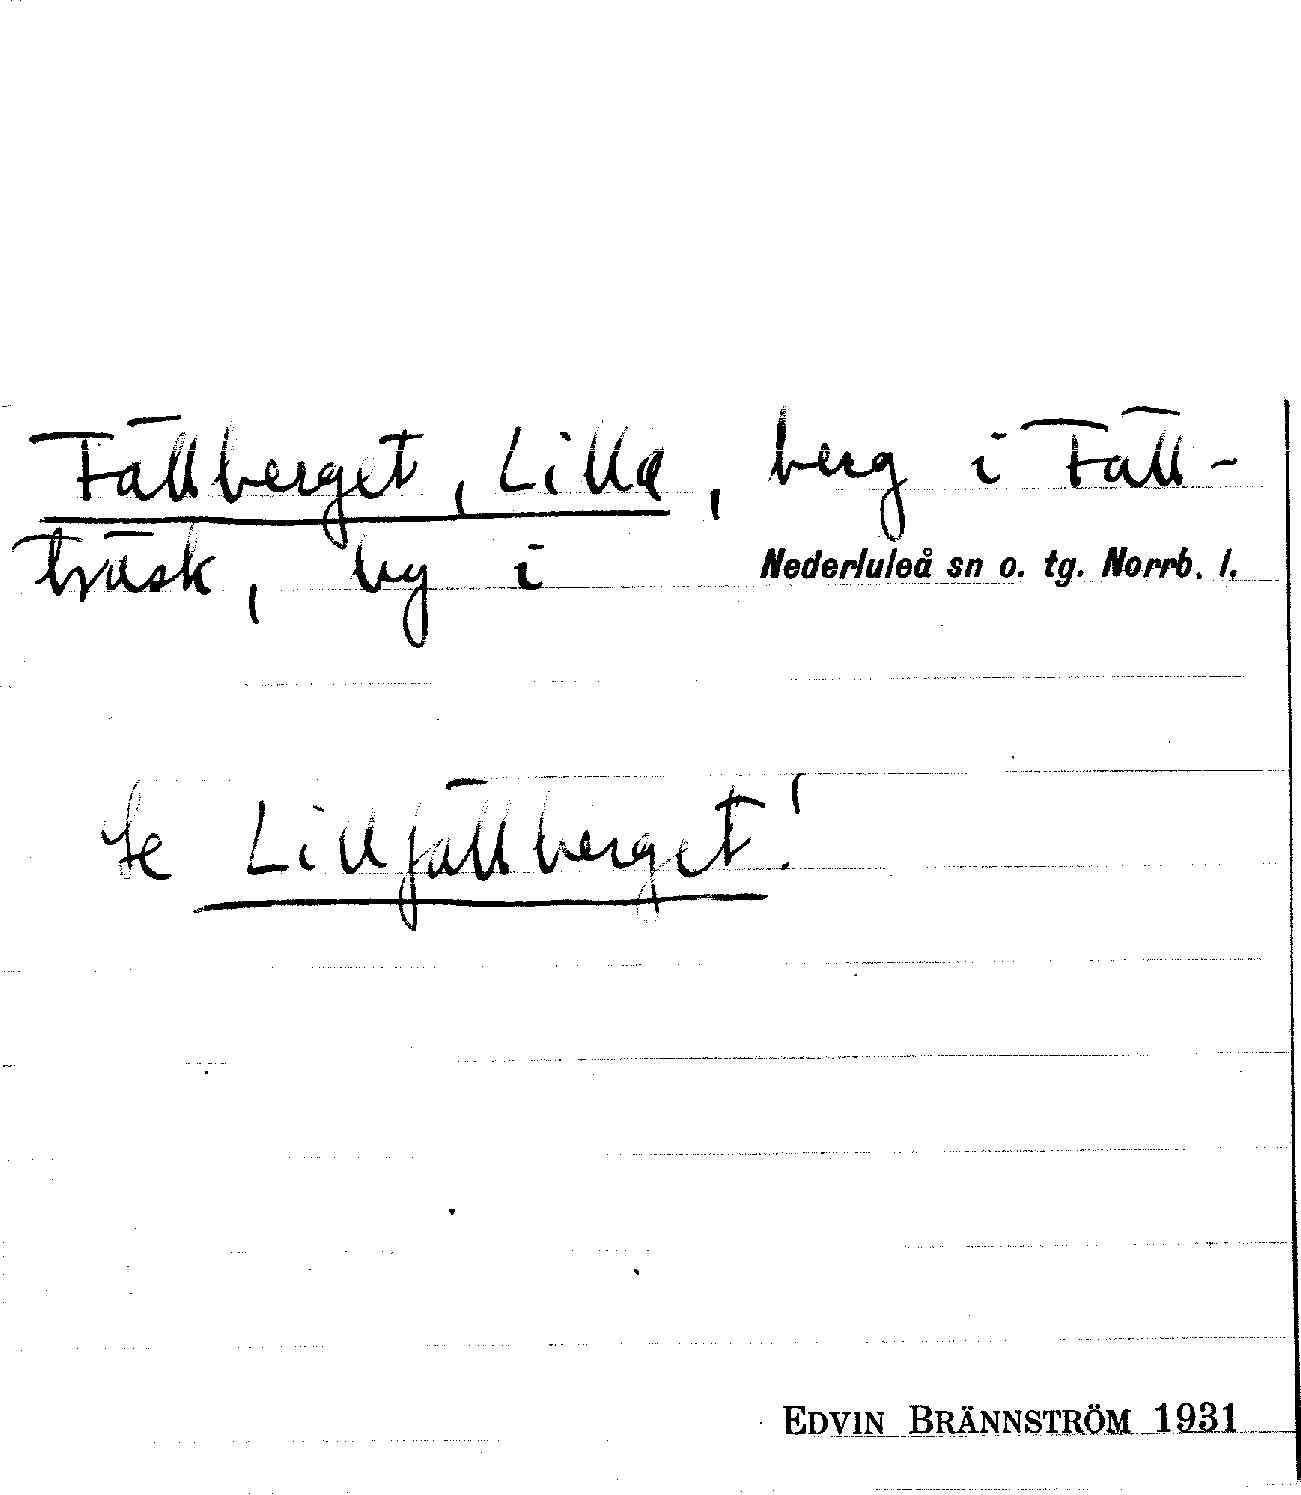 Fällberget, Lilla, berg i Fäll-
träsk, by i Nederluleå sn o. tg. Norrb. l.
Se Lillfällberget!
EDVIN BRÄNNSTRÖM 1931